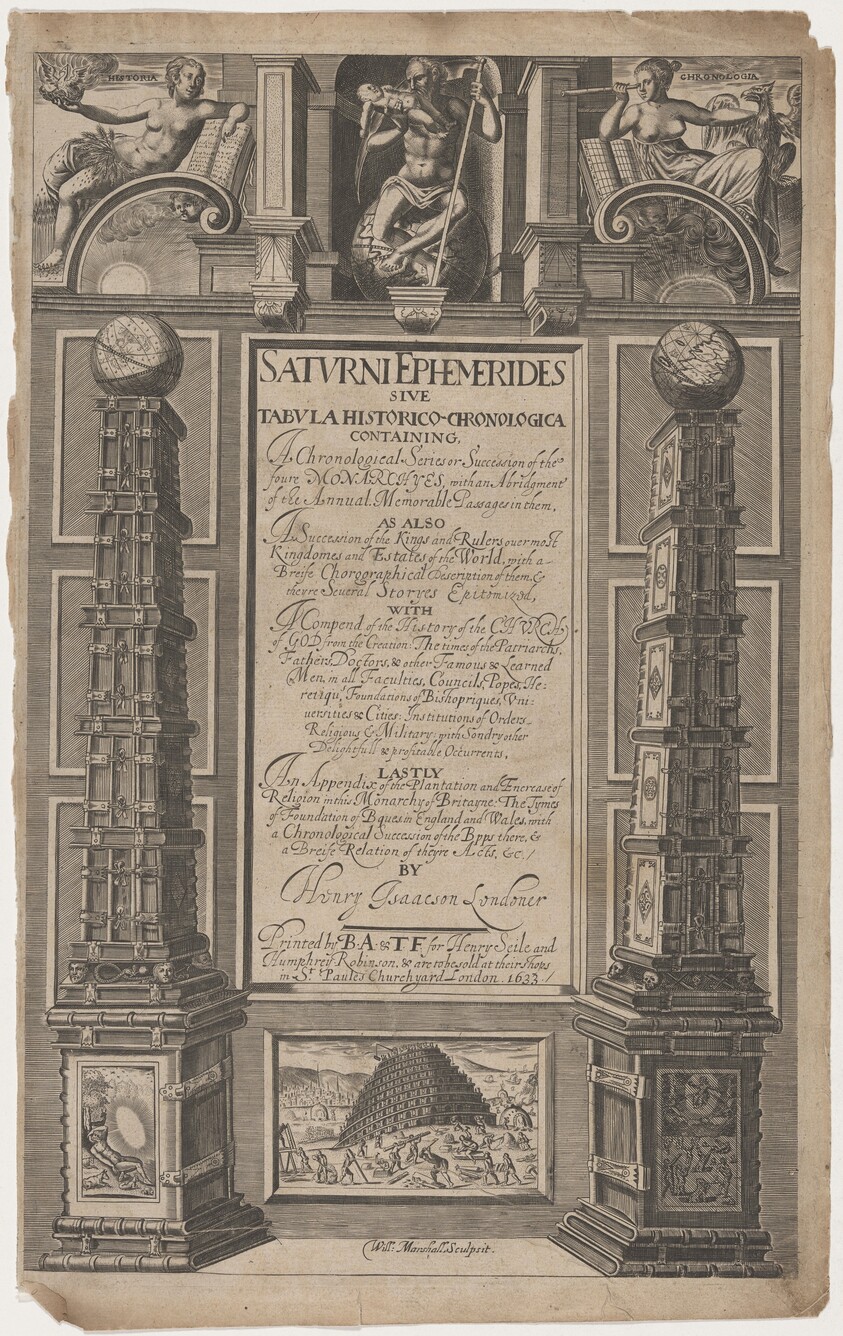 HISTORIA
CHRONOLOGIA
SATVRNI EPHEMERIDES
SIVE
TABVLA HISTORICO-CHRONOLOGICA
CONTAINING,
A Chronological Series or Succession of the
foure MONARCHYES, with an Abridgment
of the Annual Memorable Passages in them.
AS ALSO
A Succession of the Kings and Rulers over most
Kingdomes and Estates of the World, with a
Breife Chorographical Description of them, &
theyre Several Storyes Epitomized,
WITH
A Compend of the History of the CHVRCH
of GOD from the Creation: The times of the Patriarchs,
Fathers, Doctors, & other Famous & Learned
Men, in all Faculties, Councils, Popes, He-
retiqu', Foundations of Bishopriques, Vni-
uersities & Cities: Institutions of Orders
Religious & Military: with Sondry other
Delightfull & profitable Occurrents.
LASTLY
An Appendix of the Plantation and Encrease of
Religion in this Monarchy of Britayne: The Tymes
of Foundation of Bques in England and Wales, with
a Chronological Succession of the Bpps there, &
a Breife Relation of theyre Acts, &c./
BY
Henry Isaacson Londoner
Printed by B·A· & T F for Henry Seile and
Humphrey Robinson, & are to be sold at their Shops
in St. Paules Churchyard London. 1633./
Will: Marshall. Sculpsit.